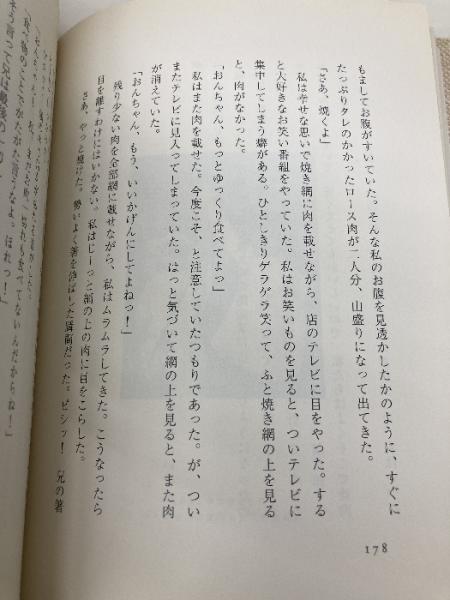 もましてお腹がすいていた。そんな私のお腹を見透かしたかのように、すぐに
たっぷりタレのかかったロース肉が二人分、山盛りになって出てきた。
「さあ、焼くよ」
私は幸せな思いで焼き網に肉を載せながら、店のテレビに目をやった。する
と大好きなお笑い番組をやっていた、私はお笑いものを見ると、ついテレビに
集中してしまう癖がある。ひとしきりゲラゲラ笑って、ふと焼き網の上を見る
と、肉がなかった。
「おんちゃん、もっとゆっくり食べてよっ」
私はまた肉を載せた。今度こそ、と注意していたつもりであった。が、つい
またテレビに見入ってしまっていた。はっと気づいて網の上を見ると、また肉
が消えていた。
「おんちゃん、もう、いいかげんにしてよねっ！」
残り少ない肉を全部網に載せながら、私はムラムラしてきた。こうなったら
目を離すわけにはいかない。私はじーっと網の上の肉に目をこらした。
さあ、やっと焼けた。勢いよく箸を伸ばした瞬間だった。ビシッ！　兄の箸
切れも食べてないんだからね！」
「食い物のことでがたがた言うなよ。ほれっ！」
そう言って兄は最後の一切
178